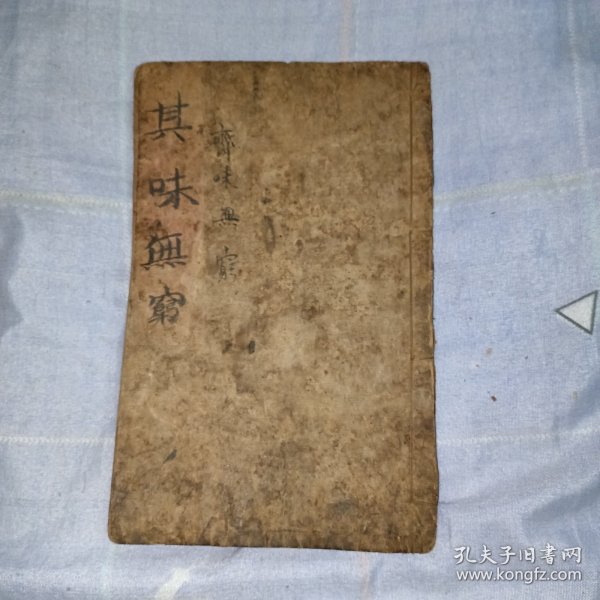 其味無窮
齊味無窮
孔夫子旧書网
www.kongfz.com